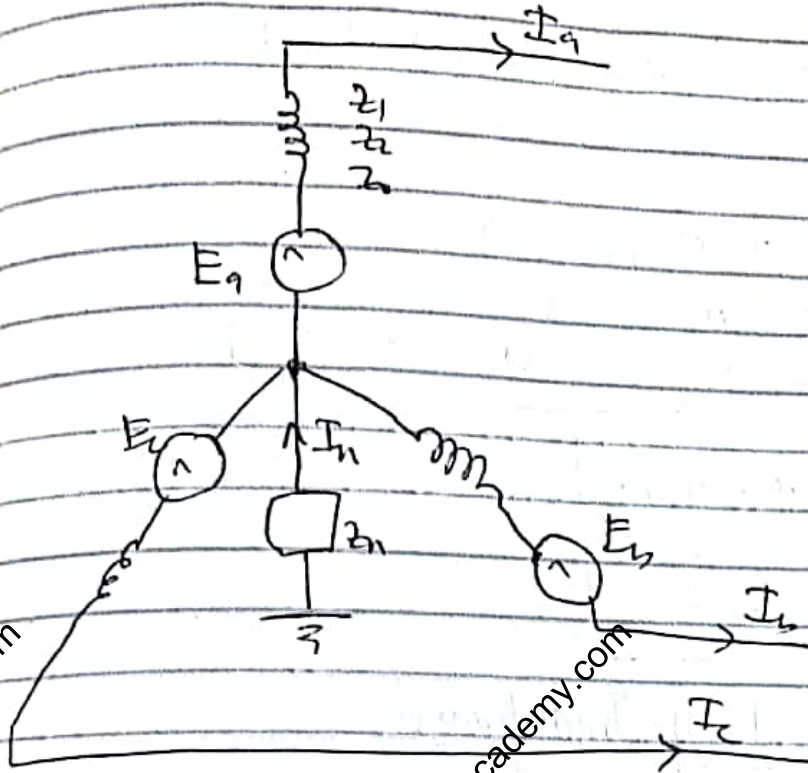 Ia
Z1
Z2
Z0
Ea
Ec
In
Zn
Eb
Ib
Ic
cademy.com
m